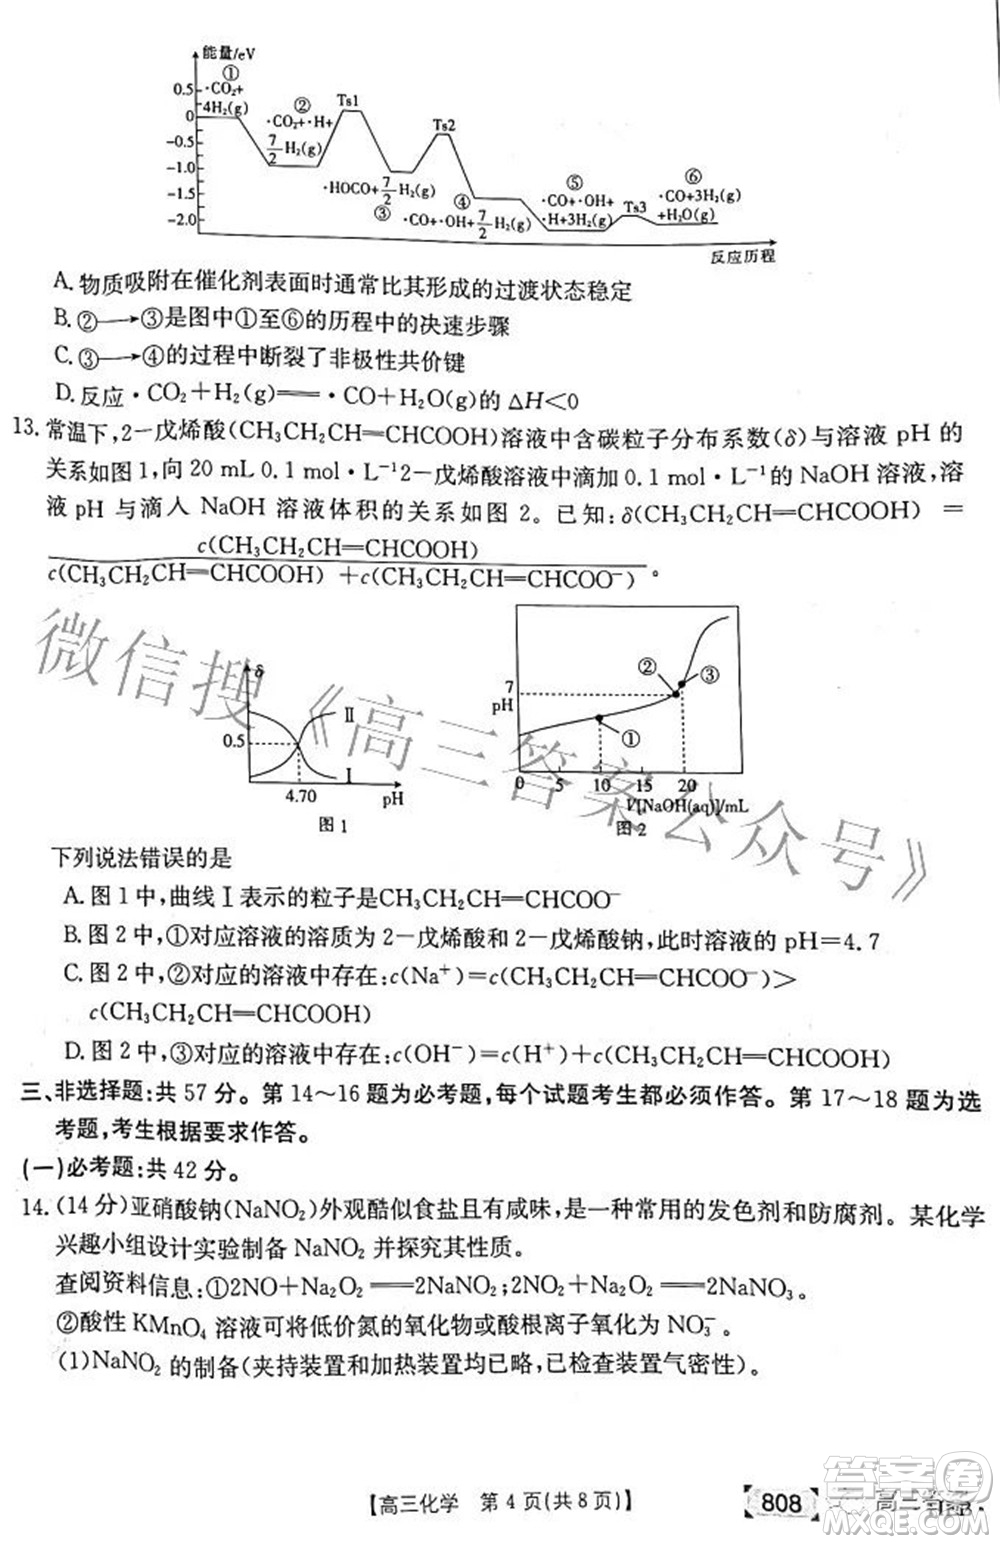 能量/eV
0.5
0
-0.5
-1.0
-1.5
-2.0
①
·CO₂+
4H₂(g)
②
·CO₂+·H+
7/2 H₂(g)
Ts1
·HOCO+7/2 H₂(g)
③
Ts2
④
·CO+·OH+7/2 H₂(g)
⑤
·CO+·OH+
·H+3H₂(g)
Ts3
⑥
·CO+3H₂(g)
+H₂O(g)
反应历程
A. 物质吸附在催化剂表面时通常比其形成的过渡状态稳定
B. ②→③是图中①至⑥的历程中的决速步骤
C. ③→④的过程中断裂了非极性共价键
D. 反应·CO₂+H₂(g)══·CO+H₂O(g)的 ΔH<0
13. 常温下,2-戊烯酸(CH₃CH₂CH=CHCOOH)溶液中含碳粒子分布系数(δ)与溶液 pH 的
关系如图 1,向 20 mL 0.1 mol·L⁻¹2-戊烯酸溶液中滴加 0.1 mol·L⁻¹的 NaOH 溶液,溶
液 pH 与滴入 NaOH 溶液体积的关系如图 2。已知:δ(CH₃CH₂CH=CHCOOH) =
c(CH₃CH₂CH=CHCOOH)
c(CH₃CH₂CH=CHCOOH)+c(CH₃CH₂CH=CHCOO⁻)。
δ
0.5
Ⅱ
Ⅰ
4.70
pH
图 1
7
pH
②
③
①
0 5 10 15 20
V[NaOH(aq)]/mL
图 2
微信搜《高三答案公众号》
下列说法错误的是
A. 图 1 中,曲线Ⅰ表示的粒子是CH₃CH₂CH=CHCOO⁻
B. 图 2 中,①对应溶液的溶质为 2-戊烯酸和 2-戊烯酸钠,此时溶液的 pH=4.7
C. 图 2 中,②对应的溶液中存在:c(Na⁺)=c(CH₃CH₂CH=CHCOO⁻)>
c(CH₃CH₂CH=CHCOOH)
D. 图 2 中,③对应的溶液中存在:c(OH⁻)=c(H⁺)+c(CH₃CH₂CH=CHCOOH)
三、非选择题:共 57 分。第 14~16 题为必考题,每个试题考生都必须作答。第 17~18 题为选
考题,考生根据要求作答。
(一)必考题:共 42 分。
14. (14 分)亚硝酸钠(NaNO₂)外观酷似食盐且有咸味,是一种常用的发色剂和防腐剂。某化学
兴趣小组设计实验制备 NaNO₂ 并探究其性质。
查阅资料信息:①2NO+Na₂O₂══2NaNO₂;2NO₂+Na₂O₂══2NaNO₃。
②酸性 KMnO₄ 溶液可将低价氮的氧化物或酸根离子氧化为 NO₃⁻。
(1)NaNO₂ 的制备(夹持装置和加热装置均已略,已检查装置气密性)。
【高三化学 第 4 页(共 8 页)】
808